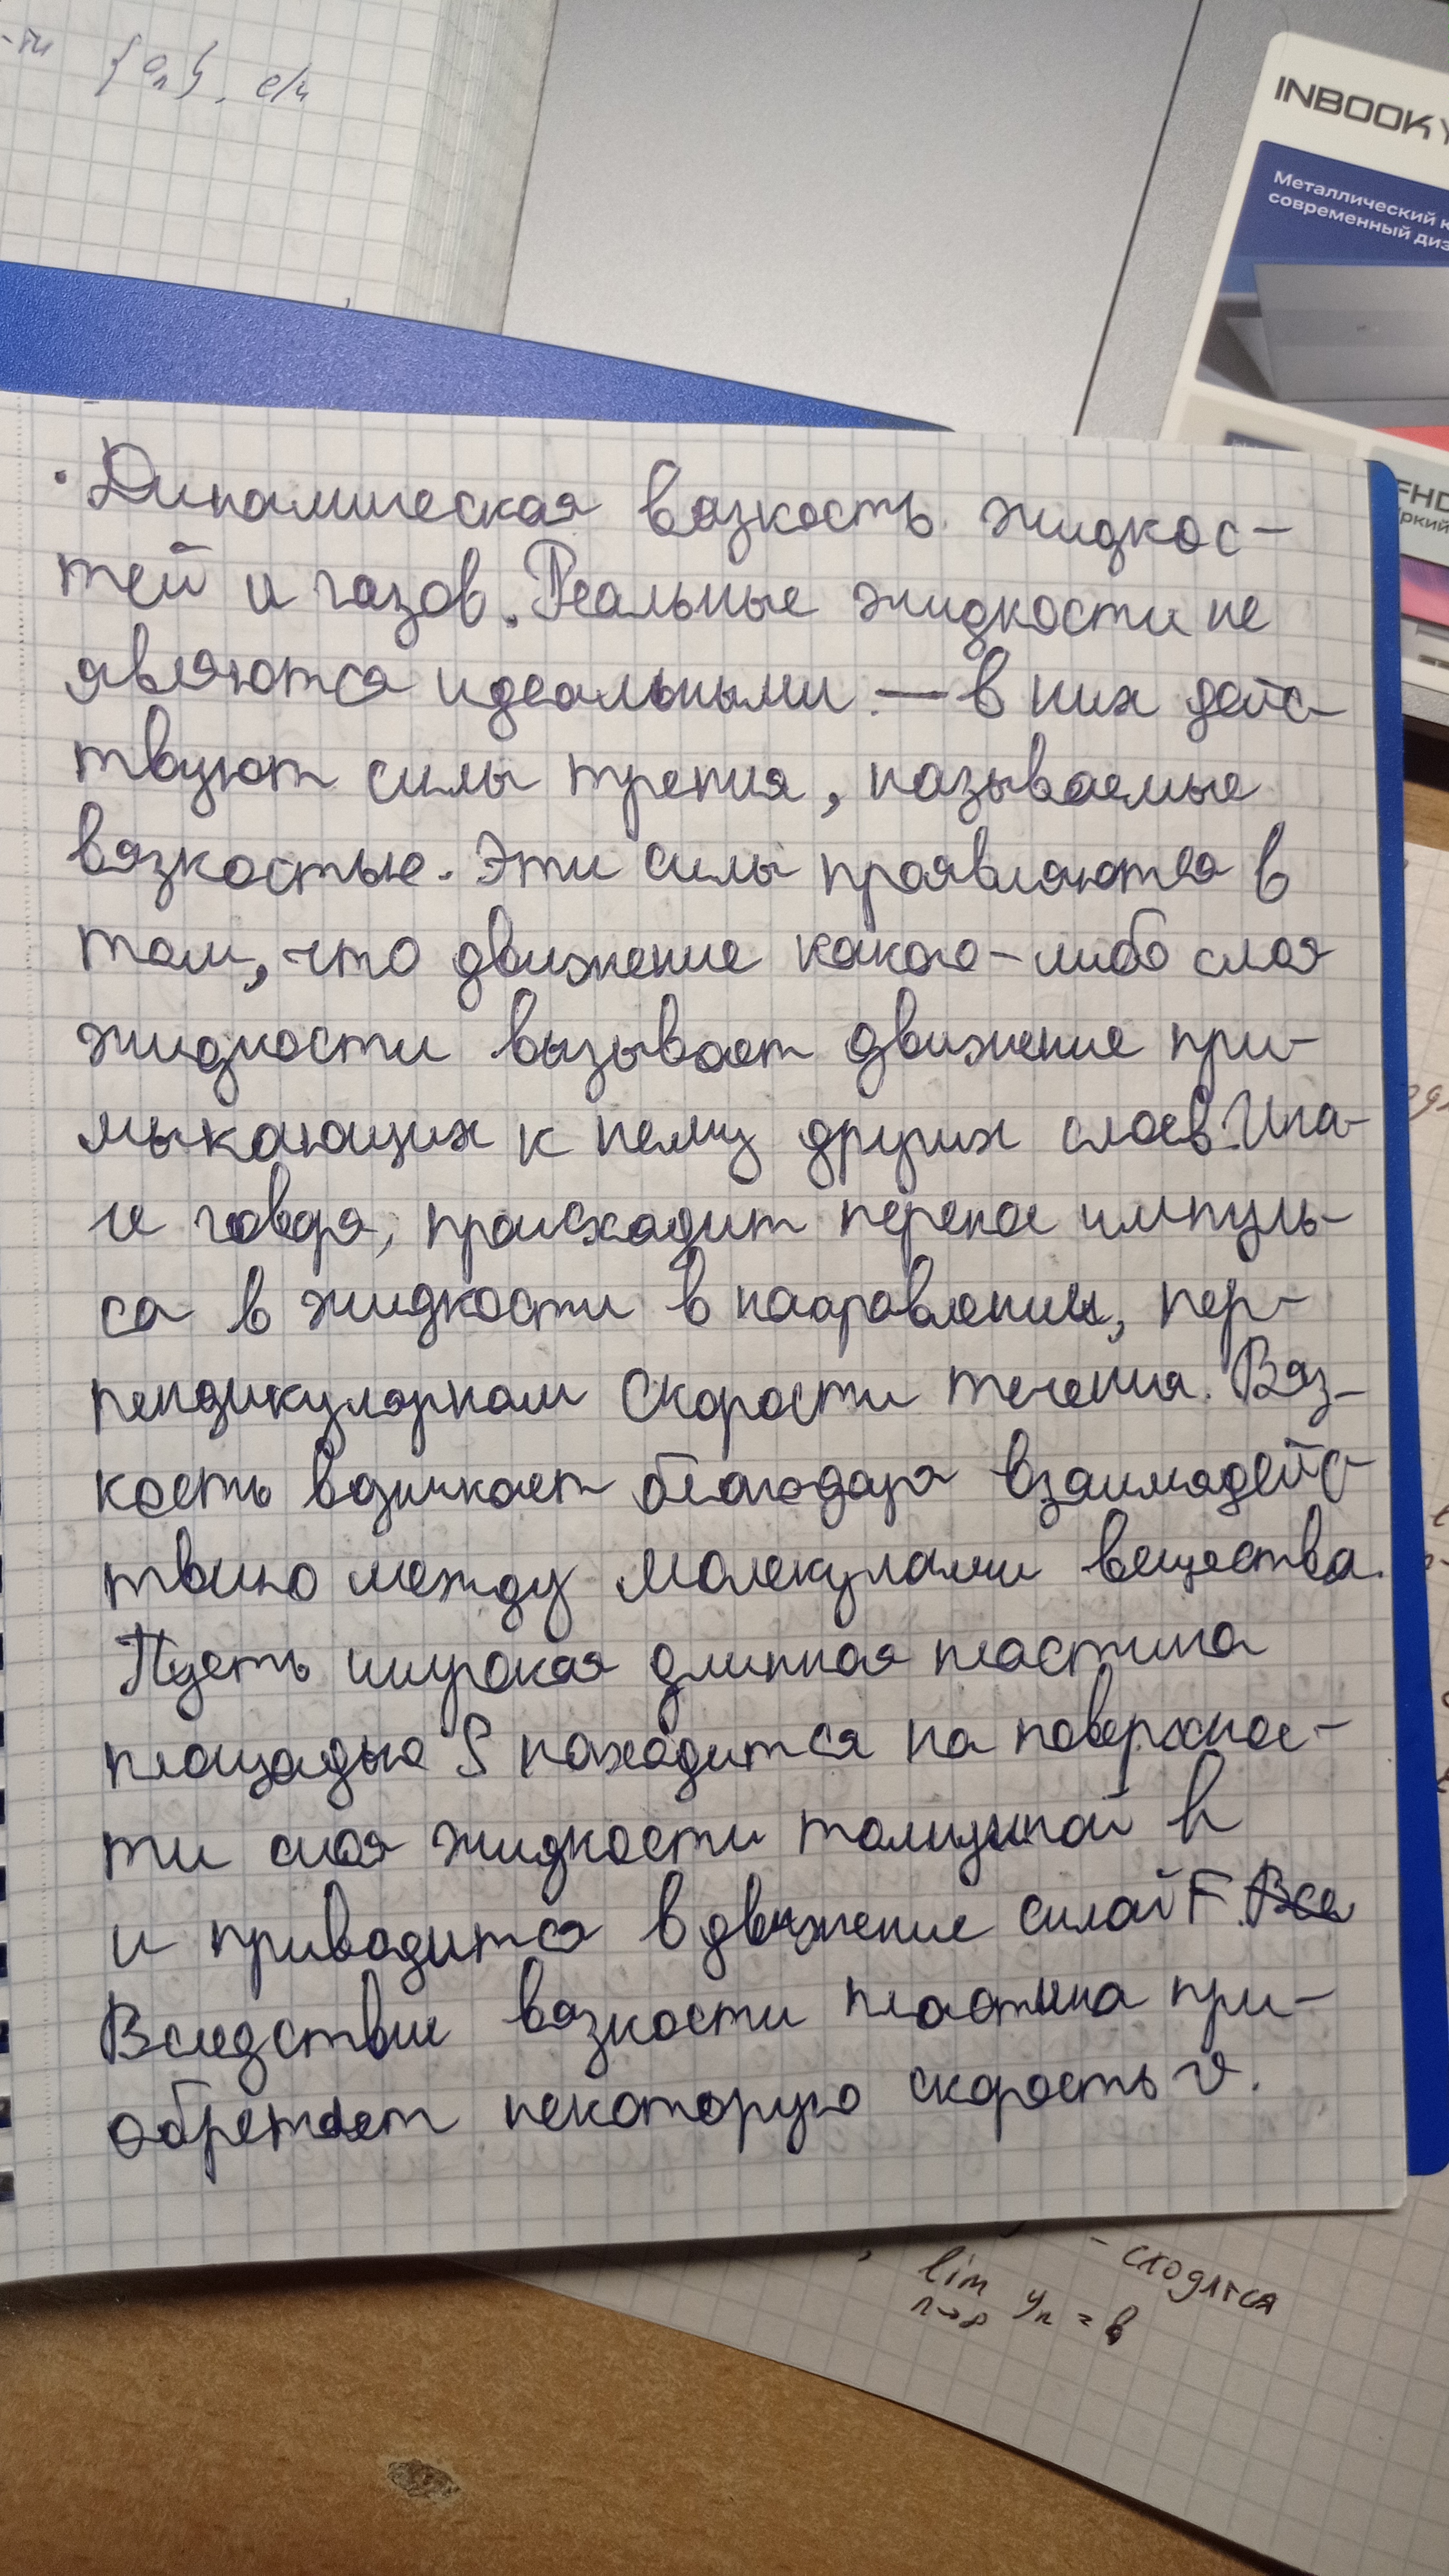 {aₙ}, е/и
INBOOK
Металлический к
современный диз
FHD
ркий
· Динамическая вязкость жидкос-
тей и газов. Реальные жидкости не
являются идеальными — в них дейс-
твуют силы трения, называемые
вязкостью. Эти силы проявляются в
том, что движение какого-либо слоя
жидкости вызывает движение при-
мыкающих к нему других слоев. Ина-
че говоря, происходит перенос импуль-
са в жидкости в направлении, пер-
пендикулярном скорости течения. Вяз-
кость возникает благодаря взаимодейс-
твию между молекулами вещества.
Пусть широкая длинная пластина
площадью S находится на поверхнос-
ти слоя жидкости толщиной h
и приводится в движение силой F. Все
Вследствие вязкости пластина при-
обретает некоторую скорость v.
- сходятся
, lim yₙ = b
n→∞